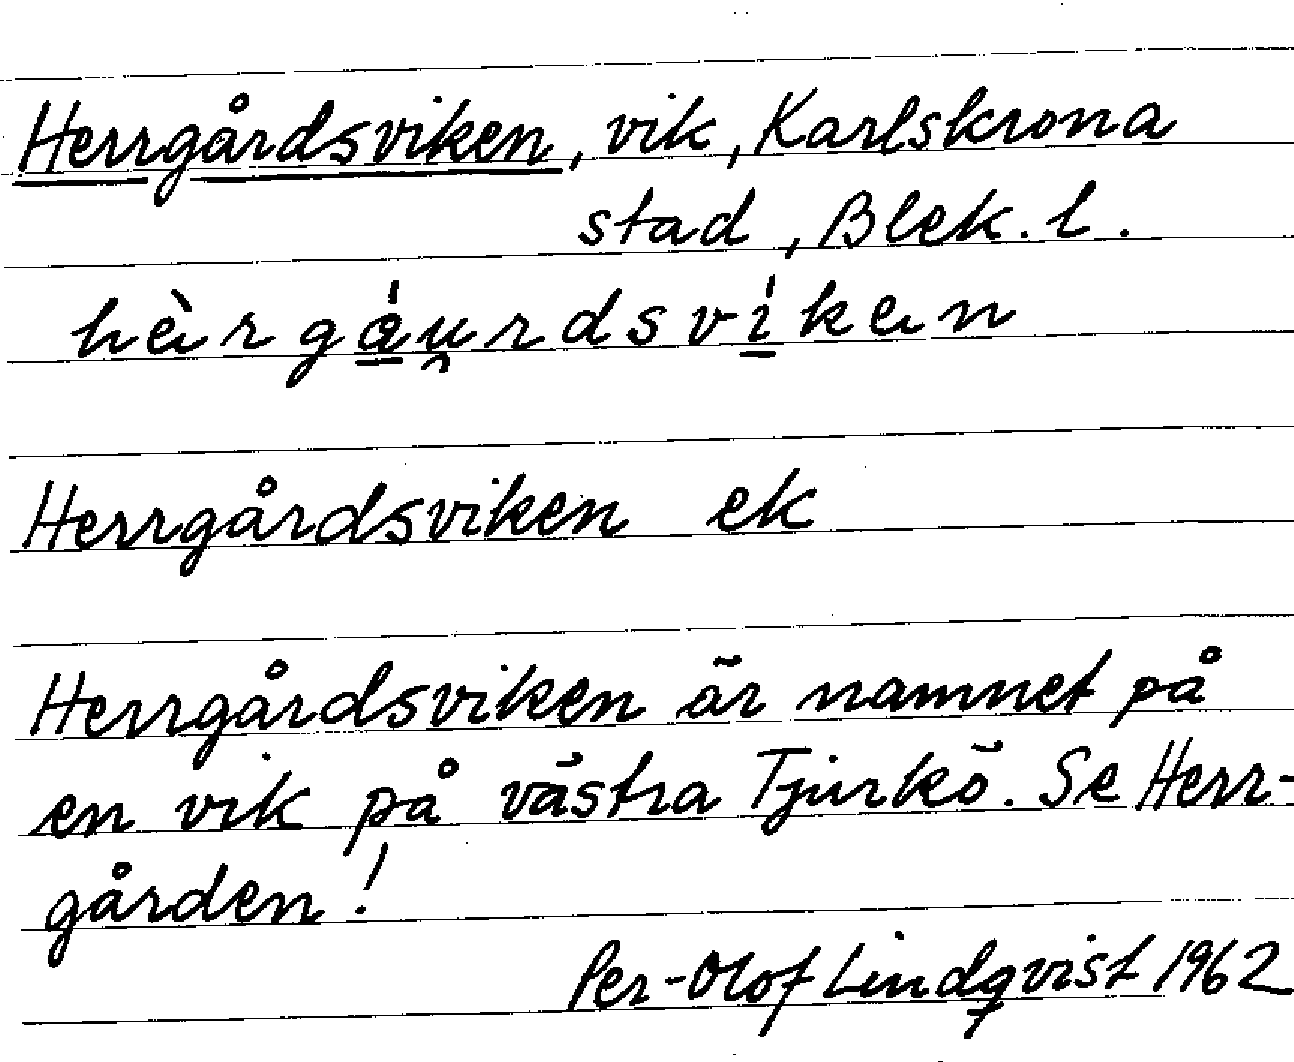 Herrgårdsviken, vik, Karlskrona
stad, Blek. l.
Herrgårdsviken ek
Herrgårdsviken är namnet på
en vik på västra Tjurkö. Se Herr-
gården!
Per-Olof Lindqvist 1962